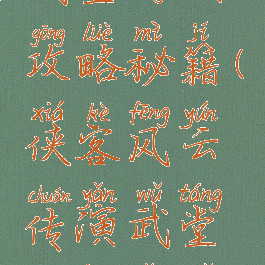 gōng lüè mì jí
攻略秘籍(
xiá kè fēng yún
侠客风云
chuán yǎn wǔ táng
传演武堂